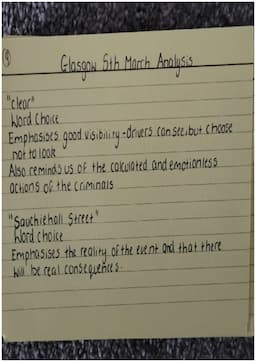 9
Glasgow 5th March Analysis
"Clear"
Word Choice
Emphasises good visibility - drivers can see, but choose
not to look
Also reminds us of the calculated and emotionless
actions of the criminals
"Sauchiehall Street"
Word Choice
Emphasises the reality of the event and that there
will be real consequences.